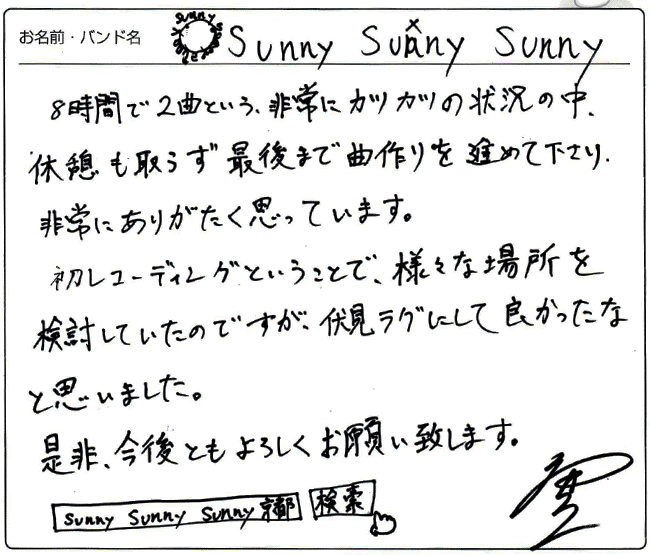 お名前・バンド名 Sunny Sunny Sunny
8時間で2曲という、非常にガツガツの状況の中、
休憩も取らず最後まで曲作りを進めて下さり、
非常にありがたく思っています。
初レコーディングということで、様々な場所を
検討していたのですが、伏見ラグにして良かったな
と思いました。
是非、今後ともよろしくお願い致します。
Sunny Sunny Sunny 京都 検索